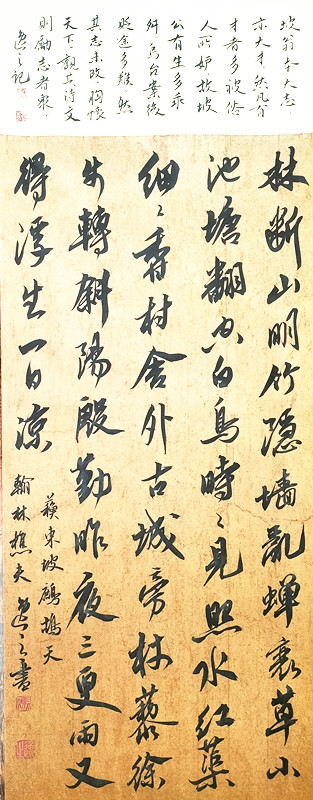 坡翁本大志
亦大才然凡有
才者多被俗
人所妒故坡
公有生多乖
舛烏台案後
貶途多難然
其志未改胸懷
天下觀其詩文
則勵志者衆
之記
林断山明竹隱墻亂蟬衰草小
池塘翻空白鳥時〻見照水紅蕖
細〻香村舍外古城旁杖藜徐
步轉斜陽殷勤昨夜三更雨又
得浮生一日凉
蘇東坡鷓鴣天
翰林樵夫之書